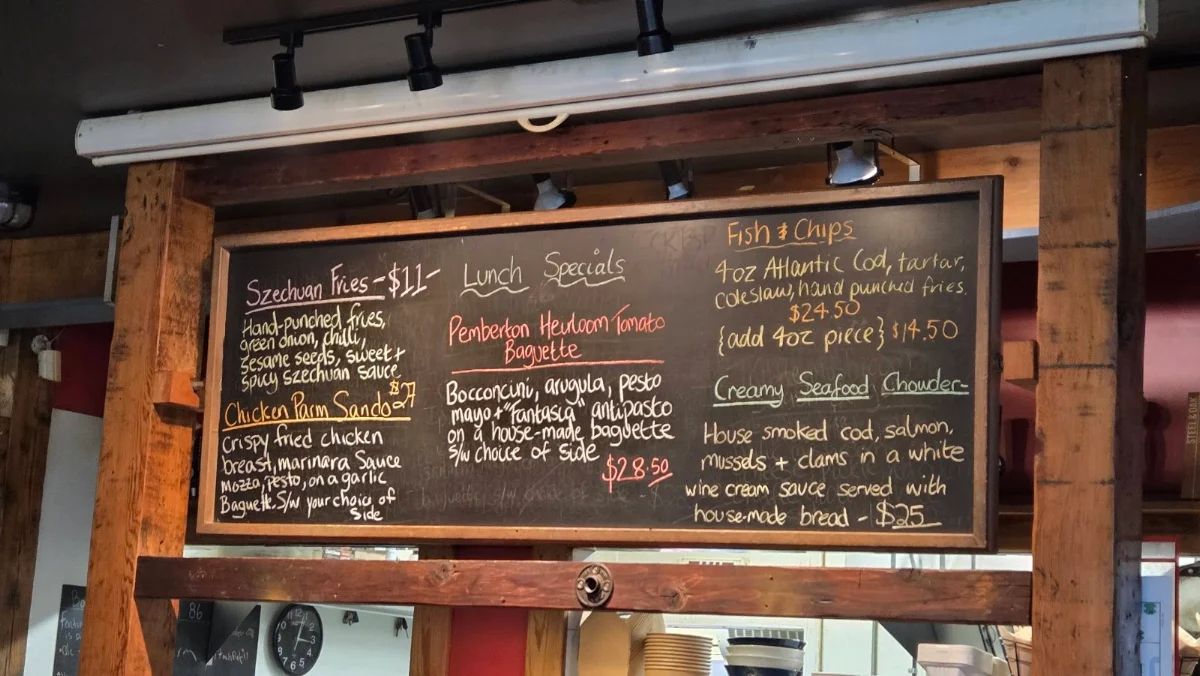 Szechuan Fries - $11-
Hand-punched fries,
green onion, chilli,
sesame seeds, sweet +
spicy szechuan sauce
Chicken Parm Sando $27
Crispy fried chicken
breast, marinara Sauce
Mozza, pesto, on a garlic
Baguette. S/w your choice of
side
Lunch Specials
Pemberton Heirloom Tomato
Baguette
Bocconcini, arugula, pesto
mayo + "Fantasia" antipasto
on a house-made baguette
s/w choice of side
$28.50
Fish & Chips
4oz Atlantic Cod, tartar,
coleslaw, hand punched fries.
$24.50
{add 4oz piece} $14.50
Creamy Seafood Chowder-
House smoked cod, salmon,
mussels + clams in a white
wine cream sauce served with
house-made bread - $25
86